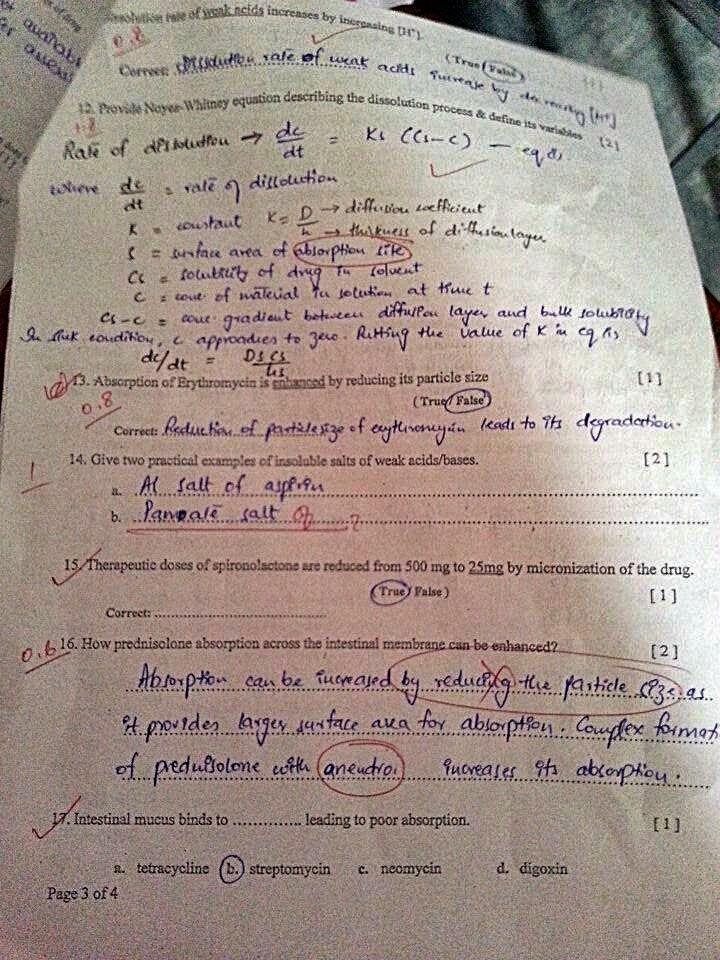 rate of weak acids increases by increasing [H+].
0.8
(True/False)
Correct: Dissolution rate of weak acids increase by decreasing [H+]
12. Provide Noyes-Whitney equation describing the dissolution process & define its variables [2]
1.8
Rate of dissolution → dc/dt = Ks (Cs-C) — eq
where dc/dt = rate of dissolution
K = constant K = D/h → diffusion coefficient → thickness of diffusion layer
S = surface area of absorption site
Cs = solubility of drug in solvent
C = conc of material in solution at time t
Cs-C = conc. gradient between diffusion layer and bulk solubility
In sink condition, C approaches to zero. Putting the value of K in eq
dc/dt = DSCs/h
13. Absorption of Erythromycin is enhanced by reducing its particle size [1]
0.8
(True/False)
Correct: Reduction of particle size of erythromycin leads to its degradation.
14. Give two practical examples of insoluble salts of weak acids/bases. [2]
1
a. Al salt of aspirin
b. Pamoate salt of ?
15. Therapeutic doses of spironolactone are reduced from 500 mg to 25mg by micronization of the drug.
(True/False) [1]
Correct:
0.6
16. How prednisolone absorption across the intestinal membrane can be enhanced? [2]
Absorption can be increased by reducing the particle size as
it provides larger surface area for absorption. Complex format
of prednisolone with increases its absorption.
17. Intestinal mucus binds to .............. leading to poor absorption. [1]
a. tetracycline b. streptomycin c. neomycin d. digoxin
Page 3 of 4